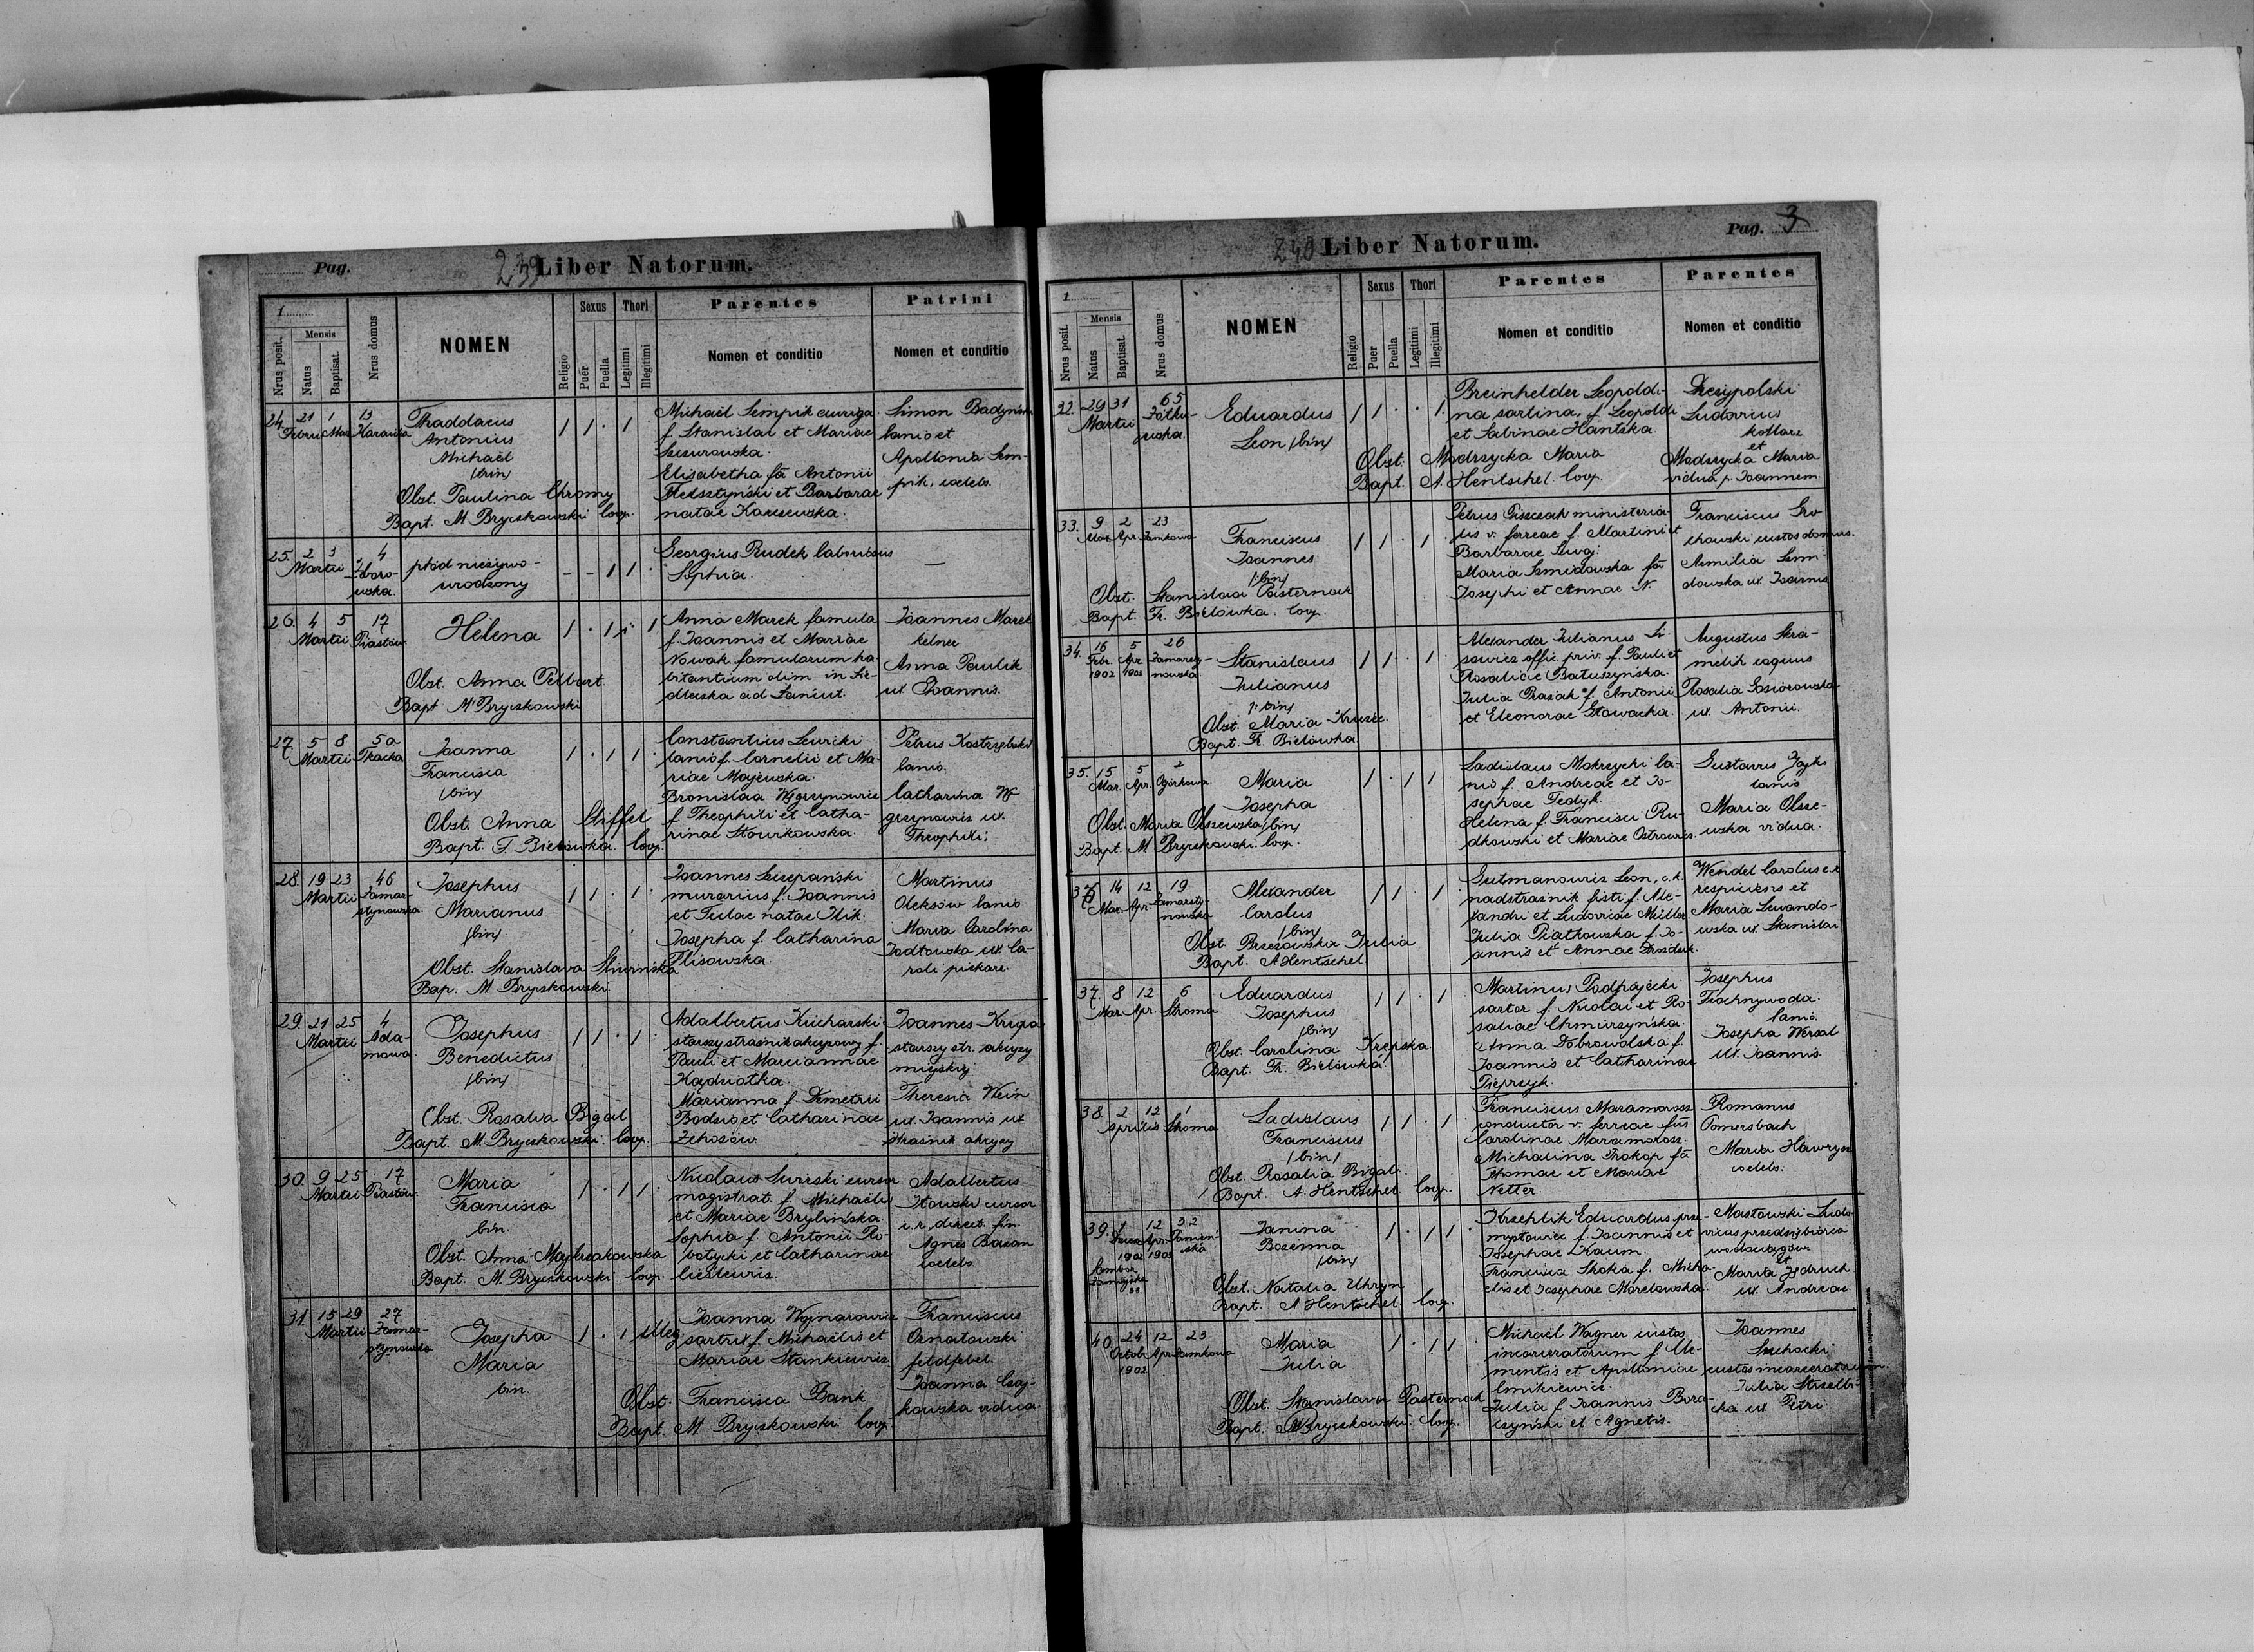 Pag.
239
Liber Natorum.
1
Nrus posit.
Mensis
Natus
Baptisat.
Nrus domus
NOMEN
Religio
Sexus
Puer
Puella
Thori
Legitimi
Illegitimi
Parentes
Nomen et conditio
Patrini
Nomen et conditio
24.
21 1
Febru Mar
13
Thaddaeus
Antonius
Michaël
/bin/
Obst. Paulina Chromy
Bapt. M. Bryczkowski Coop.
1 1 . 1
Michaël Sempik auriga
f. Stanislai et Mariae
Elisabetha fa Antonii
et Barbarae
natae
Simon
lanio et
Apollonia Sem-
pik, caelebs.
25.
2 3
Martii
4
płód nieżywo-
urodzony
- - 1 1
Georgius Rudek laboriosus
Sophia.
—
26.
4 5
Martii
17
Piastów
Helena
Obst. Anna
Bapt M. Bryczkowski
1 . 1 . 1
Anna Marek famula
f. Joannis et Mariae
Nowak famulorum ha-
bitantium olim in Sie-
dlecska ad Łańcut.
Joannes Marek
kelner
Anna Paulik
ux Joannis.
27.
5 8
Martii
5a
Tkacka
Joanna
Francisca
/bin/
Obst. Anna Stiffel
Bapt. F. Bielówka Coop.
1 . 1 1 .
Constantius
lanio f. Cornelii et Ma-
riae Majewska.
Bronislaa Węgrzynowicz
f Theophili et Catha-
rinae
Petrus
lanio.
Catharina Wę-
grzynowicz ux.
Theophili.
28.
19 23
Martii
46
Zamar-
stynowska
Josephus
Marianus
/bin/
Obst. Stanislava Śliwińska
Bap. M. Bryczkowski
1 1 . 1 .
Joannes Szczepański
murarius f. Joannis
et Teclae natae Ilik.
Josepha f. Catharina
Flisowska.
Martinus
Oleksów lanio
Maria Carolina
ux. Ca-
roli piekarz.
29.
21 25
Martii
4
Ada-
mowa
Josephus
Benedictus
/bin/
Obst. Rosalia Bigal
Bapt. M. Bryczkowski. Coop.
1 1 . 1 .
Adalbertus Kucharski
starszy strażnik akcyzowy f.
Pauli et Marciannae
Marianna f. Demetrii
et Catharinae
Joannes Kryga
starszy str. akcyzy
miejskiej
Theresia Wein
ux. Joannis ux
strażnik akcyzy
30.
9 25
Martii
17
Piastów
Maria
Francisca
bin.
Obst. Anna
Bapt. M. Bryczkowski Coop.
1 . 1 1 .
Nicolaus cursor
magistrat. f. Michaëlis
et Mariae Brylińska.
Sophia f. Antonii Ro-
botycki et Catharinae
Adalbertus
cursor
c. r. direct. fin.
Agnes
caelebs.
31.
15 29
Martii
27
Zamar-
stynowska
Josepha
Maria
bin.
1 . 1 illeg.
Joanna Wojnarowicz
sartrix f. Michaëlis et
Mariae Stankiewicz
Obst. Francisca Bank
Bapt. M. Bryczkowski Coop.
Franciscus
Ornatowski
feldfebel.
Joanna Czaj-
kowska vidua.
240
Liber Natorum.
Pag. 3
1
Nrus posit.
Mensis
Natus
Baptisat.
Nrus domus
NOMEN
Religio
Sexus
Puer
Puella
Thori
Legitimi
Illegitimi
Parentes
Nomen et conditio
Parentes
Nomen et conditio
32.
29 31
Martii
65
Żółkie-
wska.
Eduardus
Leon /bin/
1 1 . . 1.
Breinhelder Leopoldi-
na sartina, f. Leopoldi
et Sabinae Hantzka.
Obst. Modrzycka Maria
Bapt. A. Hentschel Coop.
Ludovicus
kotlarz
et
Modrzycka Maria
vidua p. Joannem.
33.
9 2
Mar. Apr.
23
Zamkowa
Franciscus
Joannes
/bin/
Obst. Stanislaa Pasternak
Bapt. Fr. Bielówka. Coop.
1 1 . 1 .
Petrus ministeria-
lis v. ferreae f. Martini et
Barbarae
Maria fa
Josephi et Annae N.
Franciscus Gro-
chowski custos domus.
Aemilia
ux. Joannis
34.
16 5
Febr. Apr.
1902 1903
26
Zamarsty-
nowska
Stanislaus
Julianus
/bin/
Obst. Maria
Bapt. Fr. Bielówka
1 1 . 1 .
Alexander Julianus Li-
sowicz offic. priv. f. Pauli et
Rosaliae Batuszyńska.
Julia f. Antonii
et Eleonorae Głowacka.
Augustus Skra-
melik coquus
Rosalia Gąsiorowska
ux. Antonii.
35.
15 5
Mar. Apr.
2
Ogórkowa
Maria
Josepha
/bin/
Obst. Maria Olszewska
Bapt. M. Bryczkowski. Coop.
1 . 1 1
Ladislaus Mokrzycki la-
nio f. Andreae et Jo-
sephae Tedyk.
Helena f. Francisci Ru-
dkowski et Mariae Ostrowicz.
Gustavus
lanio
Maria Olsze-
wska vidua.
36
14 12
Mar. Apr.
19
Zamarsty-
nowska
Alexander
Carolus
/bin/
Obst. Brzezowska Julia
Bapt. A Hentschel
1 1 . 1
Gutmanowicz Leon, c.k.
nadstrażnik fisti f. Ale-
xandri et Ludovicae Müller
Julia Piatkowska f. Jo-
annis et Annae
Wendel Carolus c.k
respiciens et
Maria Lewando-
wska ux. Stanislai
37.
8 12
Mar. Apr.
6
Stroma
Eduardus
Josephus
/bin/
Obst. Carolina Krepska
Bapt. Fr. Bielówka
1 1 . 1
Martinus Podhajecki
sartor f. Nicolai et Ro-
saliae Chmurzyńska.
Anna Dobrowolska f.
Joannis et Catharinae
Josephus
lanio.
Josepha Wersal
ux. Joannis.
38.
2 12
Aprilis
1
Stroma
Ladislaus
Franciscus
/bin/
Obst. Rosalia Bigal.
Bapt. A. Hentschel Coop.
1 1 . 1
Franciscus Maramorosz
conductor v. ferreae fus
Carolinae Maramorosz.
Michalina Prokop fa
Thomae et Mariae
Netter.
Romanus
Pomersbach
Maria Hawryn
caelebs.
39.
1 12
Apr.
1902 1903
32
Janina
Bozenna
/bin/
Obst. Natalia Uhryn
Bapt. A Hentschel Coop.
1 . 1 1
Krzeplik Eduardus prze-
mysłowiec f. Joannis et
Josephae Kaum.
Francisca Skoka f. Micha-
elis et Josephae
Masłowski Ludo-
vicus przedsiębiorca
wodociągów
et
Maria Jedruch
ux. Andreae.
40.
24 12
Octob. Apr.
1902
23
Zamkowa
Maria
Julia
Obst. Stanislava Pasternak
Bapt. M Bryczkowski Coop.
1 . 1 1 .
Michaël Wagner custos
incarceratorum f. Cle-
mentis et Apolloniae
Julia f. Joannis Bora-
czyński et Agnetis.
Joannes
Suchocki
custos incarceratorum.
Julia
ux Petri.